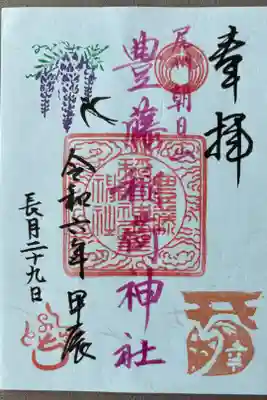 奉拝
尾州 朝日山
豊藤稲荷神社
令和六年 甲辰
長月二十九日